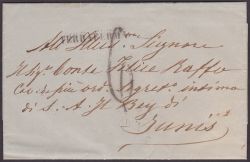 All' Illmo Signore
Il Sigr Conte Felice Raffo
Cav. di più ord. Segreto intimo
di S. A. Il Bey di
Tunis
6